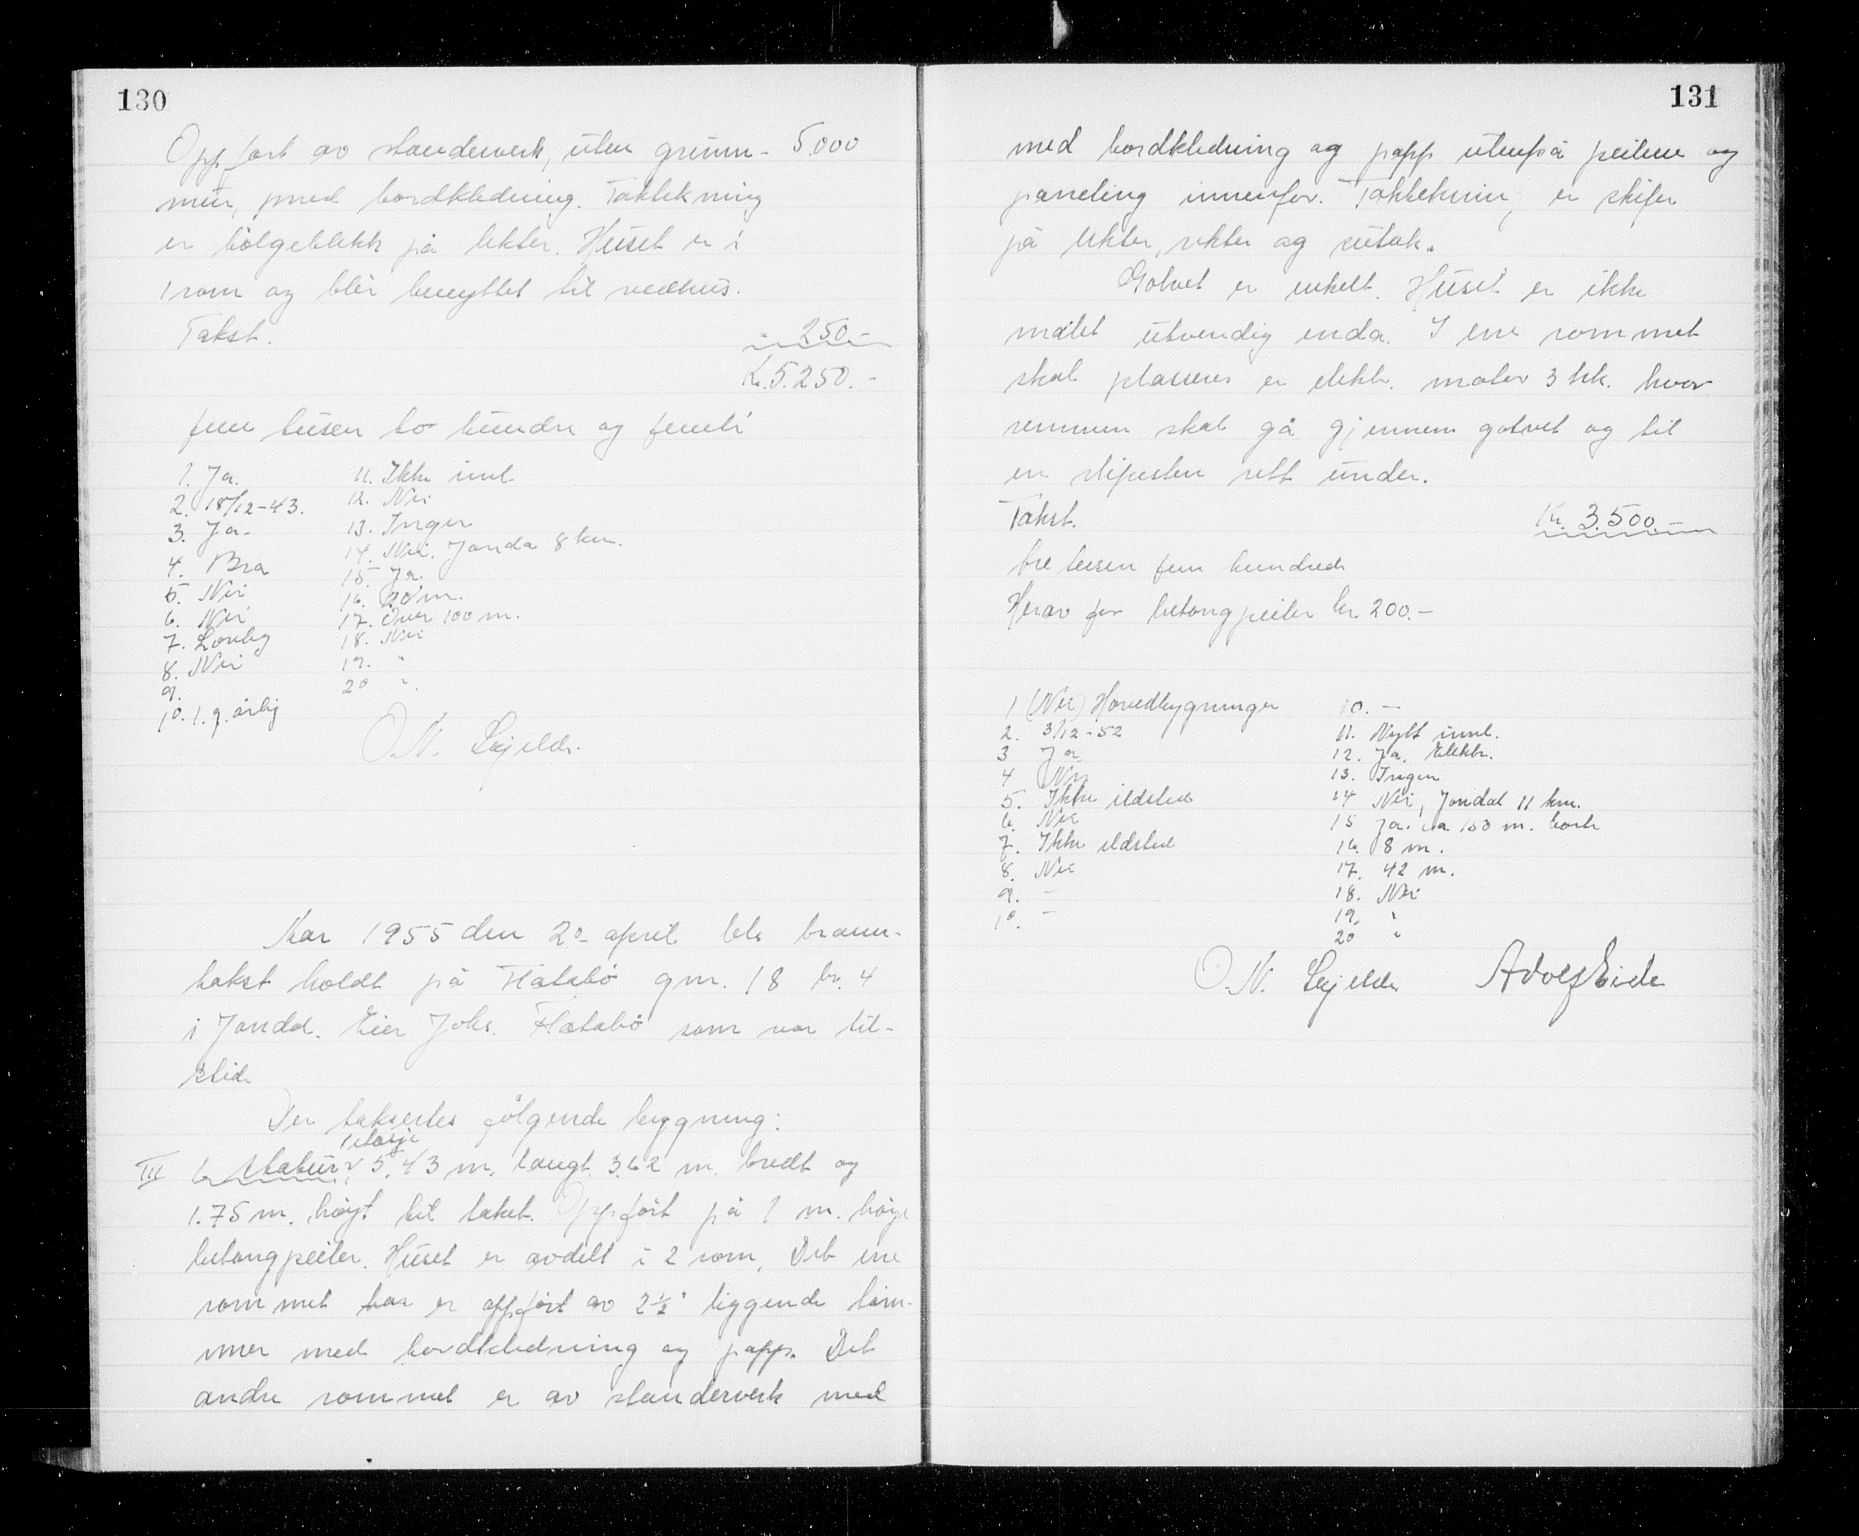 130
Oppført av standerverk, uten grunn- 5.000
mur, med bordkledning. Taktekning
er bølgeblikk på lekter. Huset er i
1 rom og blir benyttet til vedhus.
Takst. " 250.-
Kr. 5.250.-
fem tusen to hundre og femti
1. Ja.
2. 18/12-43.
3. Ja.
4. Bra
5. Nei
6. Nei
7. Lovleg
8. Nei
9.
10. 1. g. årlig
11. Ikke innl.
12. Nei
13. Ingen
14. Nei. Jondal 8 km.
15. Ja.
16. 20 m.
17. Over 100 m.
18. Nei
19. "
20 "
O. N. Skjelde.
Aar 1955 den 20 april ble brann-
takst holdt på Flatabø gnr. 18 br. 4
i Jondal. Eier Johs. Flatabø som var til-
stede
Der taksertes følgende bygning:
1 etasje
III 5,43 m. langt. 3.62 m. bredt og
1.75 m. høgt til taket. Oppført på 1 m. høge
betongpeiler. Huset er avdelt i 2 rom. Det ene
rommet er oppført av 2½" liggende tøm-
mer med bordkledning og papp. Det
andre rommet er av standerverk med
131
med bordkledning og papp utenpå peilene og
paneling innenfor. Taktekning er skifer
på lekter, rekter og sutak.
Golvet er enkelt. Huset er ikke
målt utvendig enda. I ene rommet
skal plasseres er elektr. motor 3 hk. hvor
remmen skal gå gjennem golvet og til
en slipesten rett under.
Takst. Kr. 3.500.-
tre tusen fem hundrede
Herav for betongpeiler kr. 200.-
1 (Nei) Hovedbygninger
2. 3/12-52
3 Ja
4 Nei
5. Ikke ildsted
6. Nei
7. Ikke ildsted
8. Nei
9. -
10. -
10. -
11. Nytt innl.
12. Ja. Elektr.
13. Ingen
14 Nei, Jondal 11 km.
15 Ja. ca 150 m. bort
16. 8 m.
17. 42 m.
18. Nei
19. "
20 "
O. N. Skjelde Adolf Eide